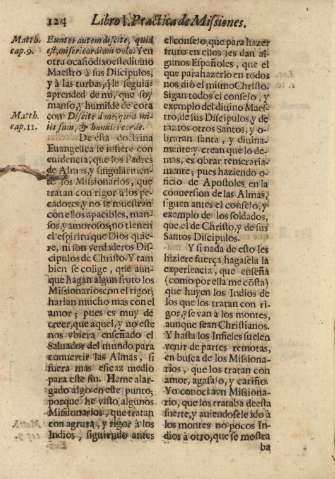 124 Libro I. Practica de Missiones.
Matth. cap. 9.
Euntes autem discite, quid
est, misericordiam volo. Y en
otra ocasió dixo este divino
Maestro à sus Dicipulos,
y à las turbas, que le seguiã:
aprended de mi, que soy
manso, y humilde de cora
Matth. cap. 11.
çon Discite à me, quia mi
tis sum, & humilis corde.
De esta doctrina
Euangelica se infiere con
euidencia, que los Padres
de Almas, y singularmen-
te los Missionarios, que
tratan con rigor à los pe-
cadores, y no se muestran
con ellos apacibles, man-
sos, y amorosos, no tienen
el espiritu que Dios quie-
re, ni son verdaderos Dis-
cipulos de Christo. Y tam
bien se colige, que aun-
que hagan algun fruto los
Missionarios, con el rigor;
harian mucho mas con el
amor; pues es muy de
creer, que aquel, y no este
nos vbiera enseñado el
Salvador del mundo para
convertir las Almas, si
fuera mas eficaz medio
para este fin. Heme alar-
gado algo en este punto;
porque he visto algunos
Missionarios, que tratan
con agrura, y rigor à los
Indios, siguiendo antes
el consejo, que para hazer
fruto en ellos les dan al-
gunos Españoles, que el
que para hazerlo en todos
nos diò el mismo Christo.
Sigan todos el consejo, y
exemplo del divino Maes-
tro, de sus Dicipulos, y de
tantos otros Santos, y o-
braràn santa, y divina-
mente, y crean que lo de-
mas, es obrar temeraria-
mente; pues haziendo o-
ficio de Apostoles en la
conversion de las Almas,
siguen antes el consejo, y
exemplo de los soldados,
que el de Christo, y de sus
Santos Discipulos.
Y si nada de esto les
hiziere fuerça, hagasela la
experiencia, que enseña
(como por ella me costa)
que huyen los Indios de
los que los tratan con ri-
gor, y se van à los montes,
aunque sean Christianos.
Y hasta los Infieles suelen
venir de partes remotas,
en busca de los Missiona-
rios, que los tratan con
amor, agasajo, y cariño.
Yo conoci à vn Missiona-
rio, que los trataba desta
suerte, y aviendosele ido à
los montes no pocos In-
dios à otro, que se mostra
ba